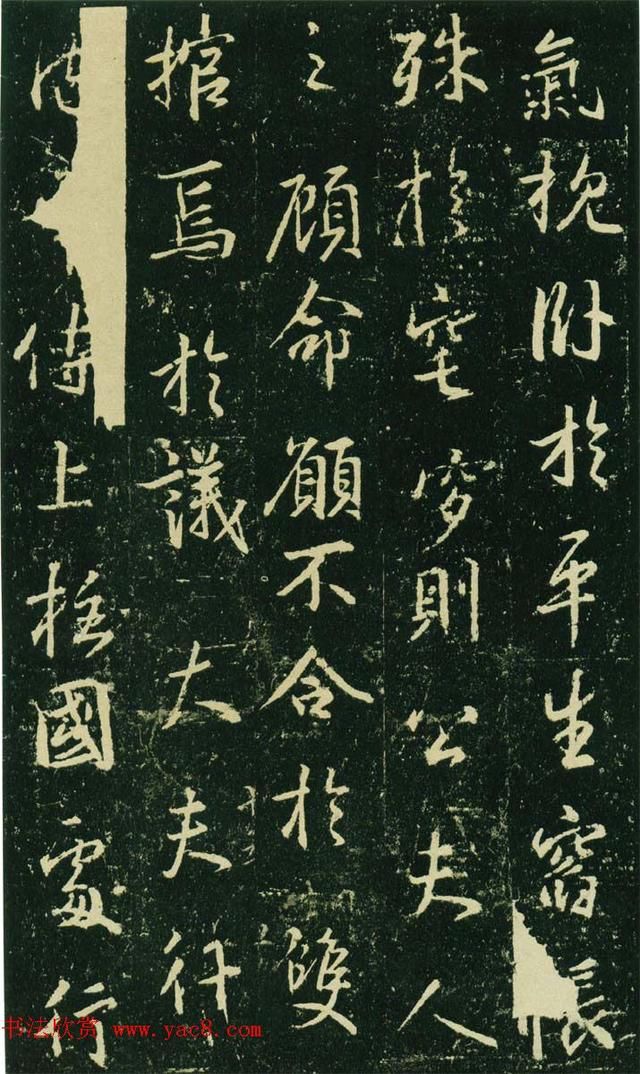 氣枕卧於平生帳
殊於窀穸則公夫人
之顧命願不合於雙
棺焉於議大夫行
侍上柱國處行
书法欣赏 www.yac8.com